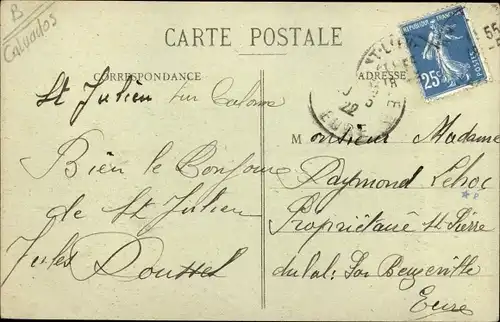 B
Calvados
CARTE POSTALE
CORRESPONDANCE
ADRESSE
REPUBLIQUE FRANÇAISE
25c
POSTES
22
EURE
55
St Julien sur Calonne
Bien le Bonjour
de St Julien
Jules Doussel
Monsieur Madame
Raymond Lehoc
Propriétaire St Pierre
du Val Par Beuzeville
Eure